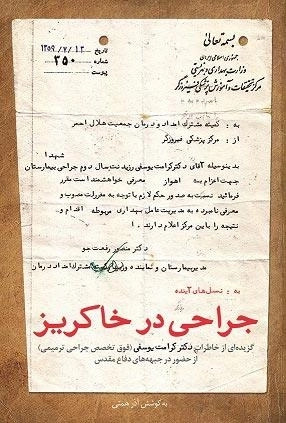 بسمه تعالی
جمهوری اسلامی ایران
وزارت بهداری و بهزیستی
مرکز تحقیقات و آموزش پزشکی فیروزگر
تاریخ ۱۳۵۹/۷/۱۲
شماره ۳۵۰
پیوست
به : کمیته مشترک امداد و درمان جمعیت هلال احمر
از : مرکز پزشکی فیروزگر
شهدا
بدینوسیله آقای دکتر کرامت یوسفی رزیدنت سال دوم جراحی بیمارستان
جهت اعزام به اهواز معرفی خواهشمند است مقرر
فرمائید نسبت به صدور حکم لازم با توجه به مقررات مصوب و
معرفی نامبرده به مدیریت عامل بهداری مربوطه اقدام و
نتیجه را باین مرکز اعلام دارند .
دکتر منصور رفعت جو
مدیر بیمارستان و نماینده وزیر مشترک امداد و درمان
به : نسل‌های آینده
جراحی در خاکریز
گزیده‌ای از خاطرات دکتر کرامت یوسفی (فوق تخصص جراحی ترمیمی)
از حضور در جبهه‌های دفاع مقدس
به کوشش آذر همتی